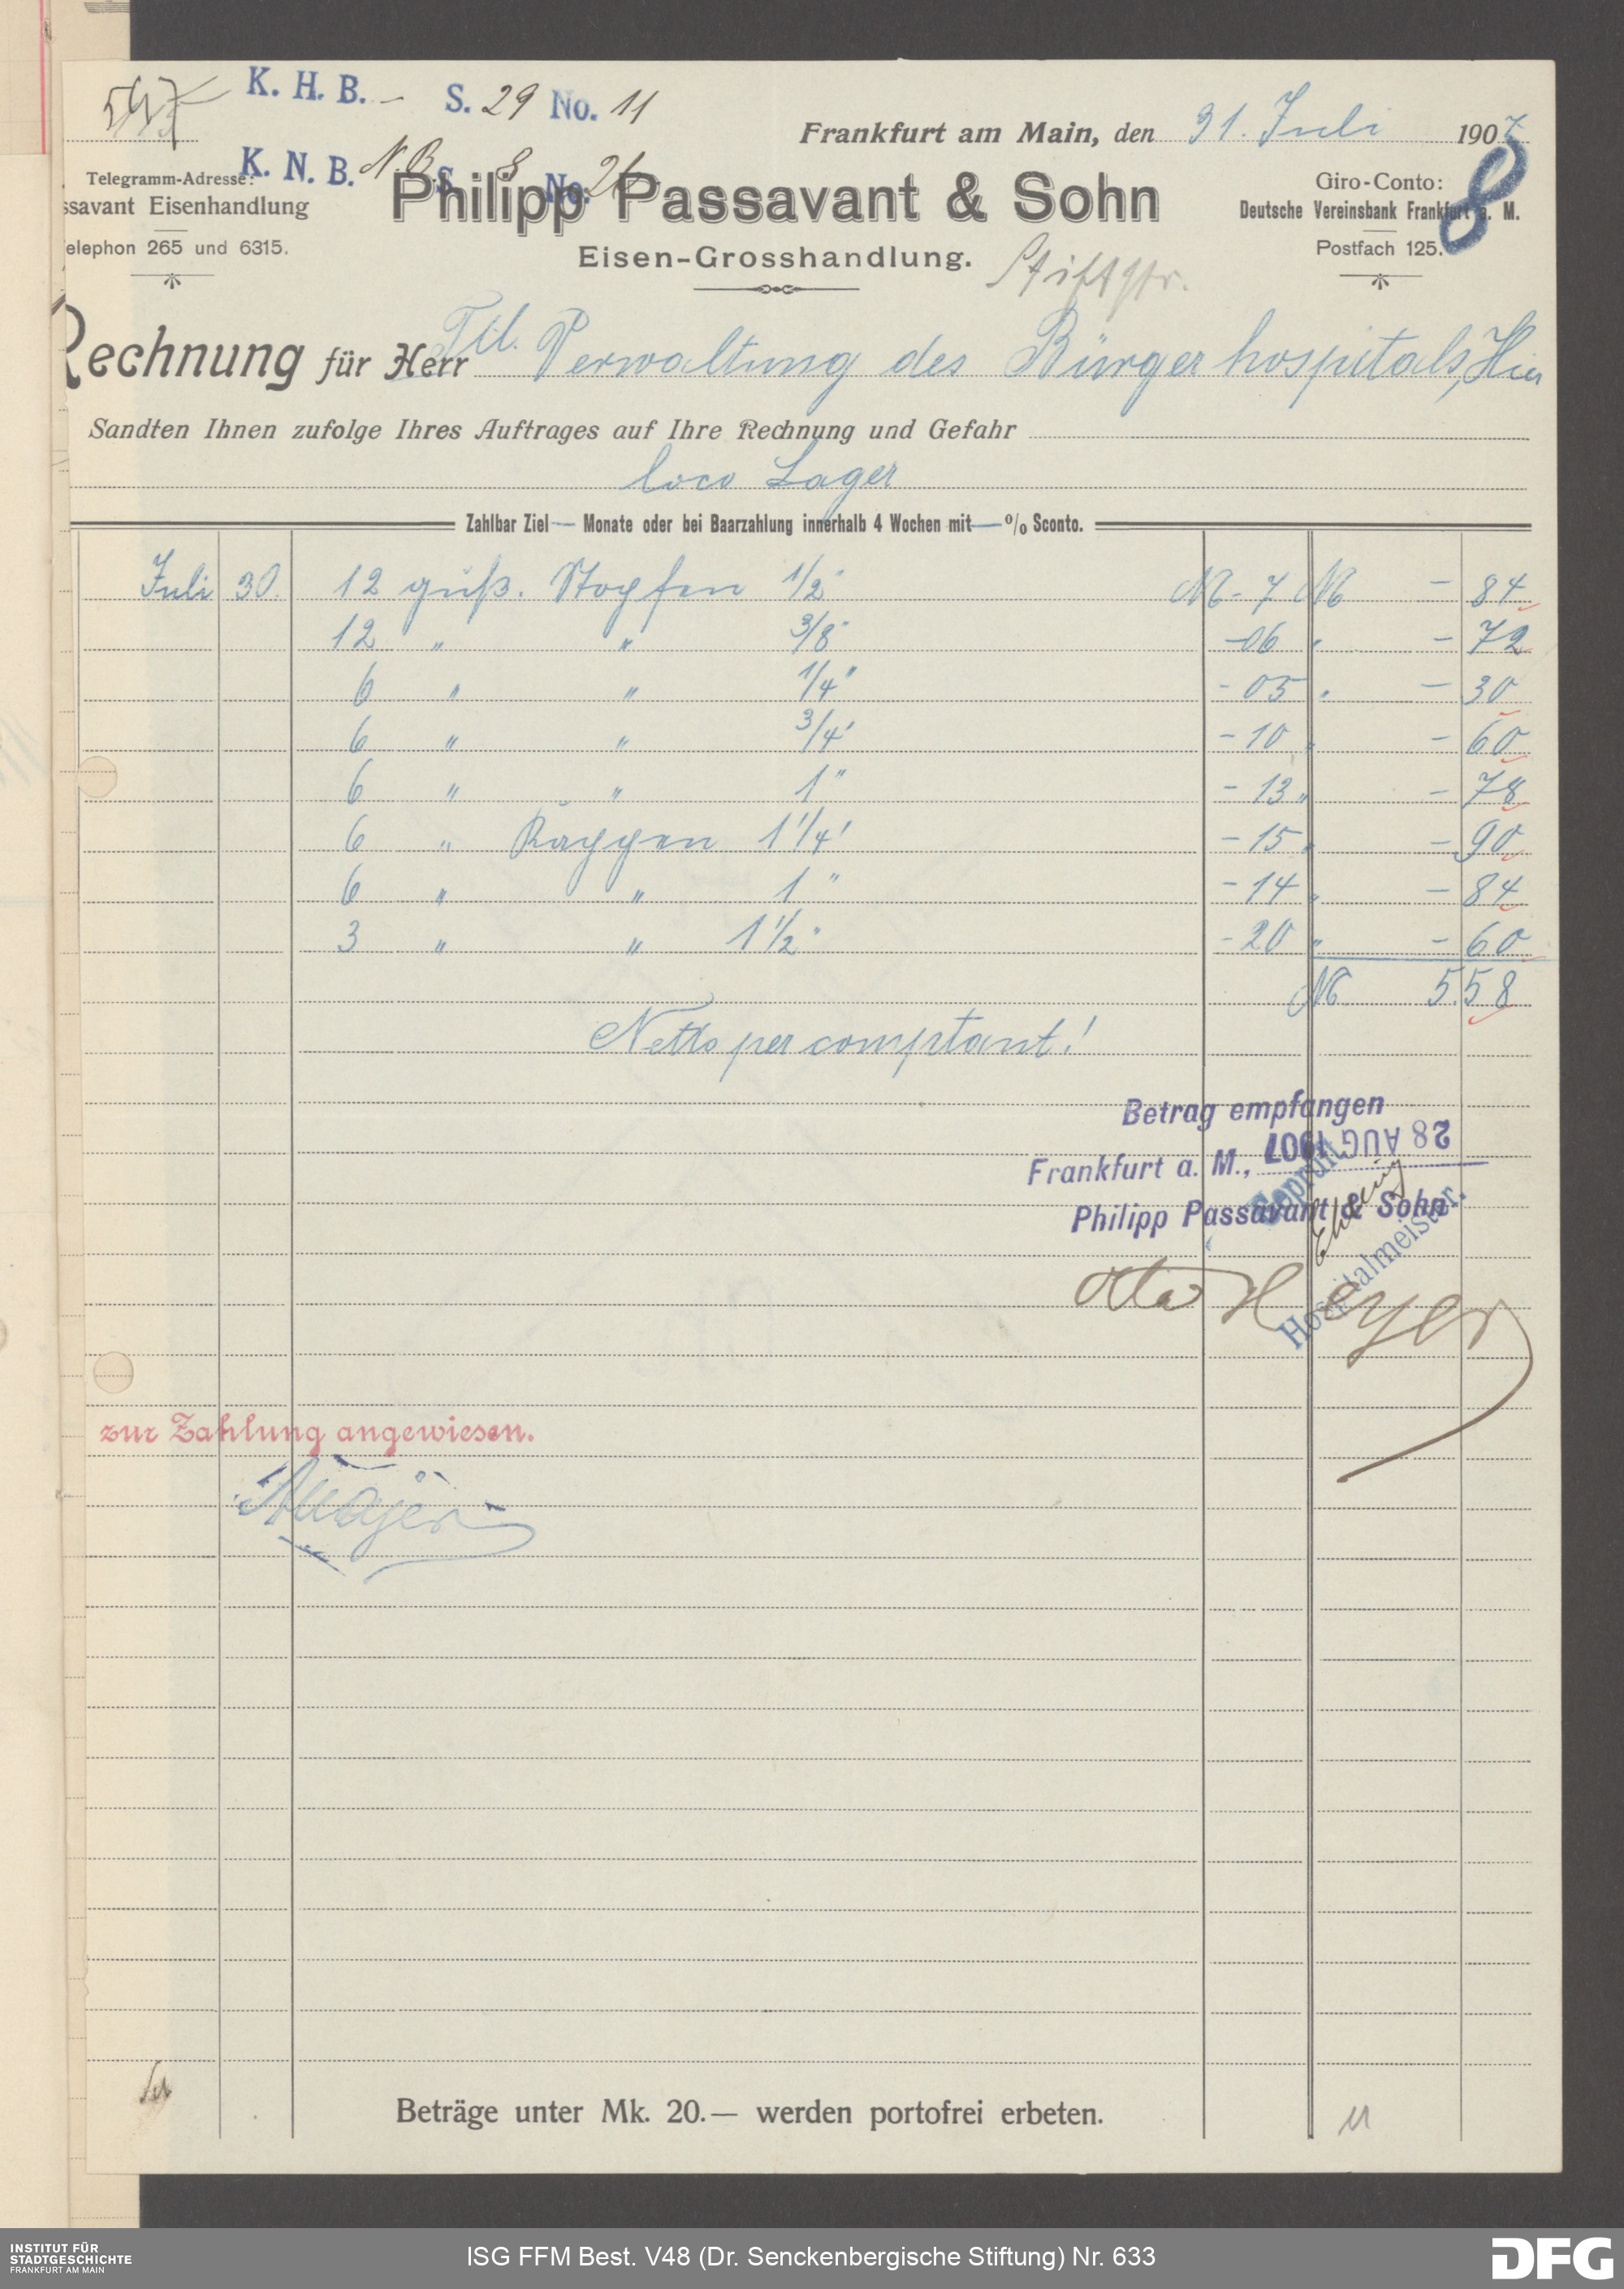 547
K. H. B. – S. 29 No. 11
Frankfurt am Main, den 31. Juli 1907
K. N. B. N.B. S. 8 No. 26
8
Telegramm-Adresse:
ssavant Eisenhandlung
elephon 265 und 6315.
Philipp Passavant & Sohn
Eisen-Grosshandlung.
Giro-Conto:
Deutsche Vereinsbank Frankfurt a. M.
Postfach 125.
Stiftstr.
Rechnung für Herr Ttl. Verwaltung des Bürgerhospitals, Hier
Sandten Ihnen zufolge Ihres Auftrages auf Ihre Rechnung und Gefahr
loco Lager
Zahlbar Ziel — Monate oder bei Baarzahlung innerhalb 4 Wochen mit — % Sconto.
Juli 30. 12 guß. Stopfen 1/2" M - 7 M – 84
12 " " 3/8" -06 " – 72
6 " " 1/4" - 05 " – 30
6 " " 3/4" - 10 " – 60
6 " " 1" - 13 " – 78
6 " Kappen 1 1/4" - 15 " – 90
6 " " 1" - 14 " – 84
3 " " 1 1/2" - 20 " – 60
M 5.58
Netto per comptant!
Betrag empfangen
Frankfurt a. M., 28 AUG 1907
Philipp Passavant & Sohn
Geprüft
Hospitalmeister.
Otto Heyer
zur Zahlung angewiesen.
Beträge unter Mk. 20.— werden portofrei erbeten.
INSTITUT FÜR
STADTGESCHICHTE
FRANKFURT AM MAIN
ISG FFM Best. V48 (Dr. Senckenbergische Stiftung) Nr. 633
DFG